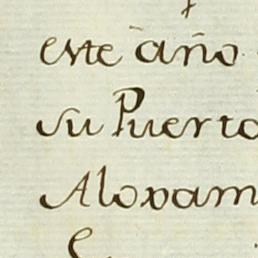 este año
su Puerto
Aloxam